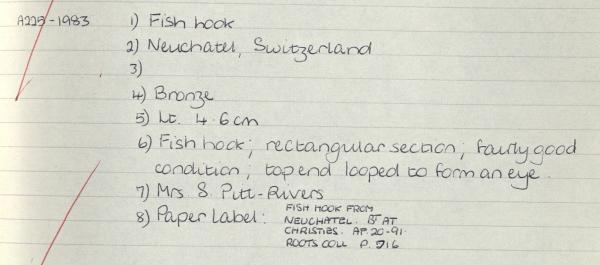 A225-1983 1) Fish hook
2) Neuchatel, Switzerland
3)
4) Bronze
5) Lt. 4.6cm
6) Fish hook; rectangular section; fairly good
condition; top end looped to form an eye.
7) Mrs S. Pitt-Rivers
8) Paper Label: FISH HOOK FROM
NEUCHATEL. BT AT
CHRISTIES. AP. 20-91.
ROOTS COLL P. 716